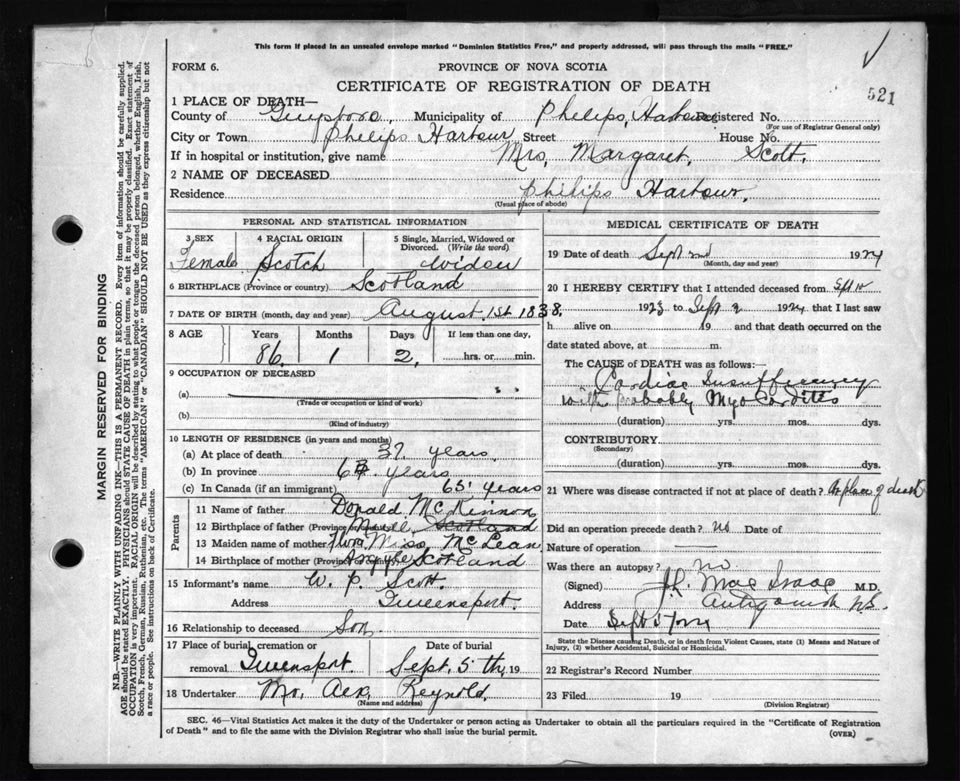 This form if placed in an unsealed envelope marked "Dominion Statistics Free," and properly addressed, will pass through the mails "FREE."
FORM 6.
PROVINCE OF NOVA SCOTIA
CERTIFICATE OF REGISTRATION OF DEATH
521
1 PLACE OF DEATH—
County of Guysboro, Municipality of Philips, Harbour Registered No.
(For use of Registrar General only)
City or Town Philips Harbour Street House No.
If in hospital or institution, give name Mrs, Margaret, Scott.
2 NAME OF DECEASED
Residence Philips Harbour,
(Usual place of abode)
PERSONAL AND STATISTICAL INFORMATION
3 SEX Female
4 RACIAL ORIGIN Scotch
5 Single, Married, Widowed or Divorced. (Write the word) widow
6 BIRTHPLACE (Province or country) Scotland
7 DATE OF BIRTH (month, day and year) August, 1st 1838,
8 AGE Years Months Days If less than one day,
86, 1 2, hrs. or min.
9 OCCUPATION OF DECEASED
(a)
(Trade or occupation or kind of work)
(b)
(Kind of industry)
10 LENGTH OF RESIDENCE (in years and months)
(a) At place of death 37 years,
(b) In province years
(c) In Canada (if an immigrant) 65 years
Parents
11 Name of father Donald McKinnon
12 Birthplace of father (Province or country) Scotland
13 Maiden name of mother Flora, Miss, McLean
14 Birthplace of mother (Province or country) Argyle Scotland
15 Informant's name W. P. Scott.
Address Queensport.
16 Relationship to deceased Son.
17 Place of burial, cremation or removal Queensport
Date of burial Sept. 5th, 19
18 Undertaker Mr, Alex, Reynold,
(Name and address)
MEDICAL CERTIFICATE OF DEATH
19 Date of death Sept 2nd 1924
(Month, day and year)
20 I HEREBY CERTIFY that I attended deceased from Sept
1923 to Sept 2 1924 that I last saw
h alive on 19 and that death occurred on the
date stated above, at m.
The CAUSE OF DEATH was as follows:
Cardiac Insufficiency
with probably Myocarditis
(duration) yrs. mos. dys.
CONTRIBUTORY.
(Secondary)
(duration) yrs. mos. dys.
21 Where was disease contracted if not at place of death? At place of death
Did an operation precede death? no Date of
Nature of operation
Was there an autopsy? no
(Signed) Mac Isaac M.D.
Address Antigonish N.S.
Date Sept 5
State the Disease causing Death, or in death from Violent Causes, state (1) Means and Nature of Injury, (2) whether Accidental, Suicidal or Homicidal.
22 Registrar's Record Number
23 Filed 19
(Division Registrar)
SEC. 46—Vital Statistics Act makes it the duty of the Undertaker or person acting as Undertaker to obtain all the particulars required in the "Certificate of Registration
of Death" and to file the same with the Division Registrar who shall issue the burial permit.
(OVER)
MARGIN RESERVED FOR BINDING
N.B.—WRITE PLAINLY WITH UNFADING INK—THIS IS A PERMANENT RECORD. Every item of information should be carefully supplied.
AGE should be stated EXACTLY. PHYSICIANS should STATE CAUSE OF DEATH in plain terms, so that it may be properly classified. Exact statement of
OCCUPATION is very important. RACIAL ORIGIN will be described by stating to what people or tongue the deceased person belonged, whether English, Irish,
Scotch, French, German, Russian, Ruthenian, etc. The terms "AMERICAN" or "CANADIAN" SHOULD NOT BE USED as they express citizenship but not
a race or people. See instructions on back of Certificate.